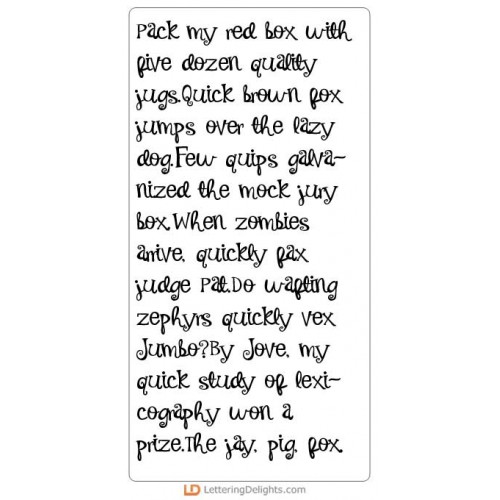 Pack my red box with
five dozen quality
jugs.Quick brown fox
jumps over the lazy
dog.Few quips galva-
nized the mock jury
box.When zombies
arrive, quickly fax
judge Pat.Do wafting
zephyrs quickly vex
Jumbo?By Jove, my
quick study of lexi-
cography won a
prize.The jay, pig, fox,
LD LetteringDelights.com